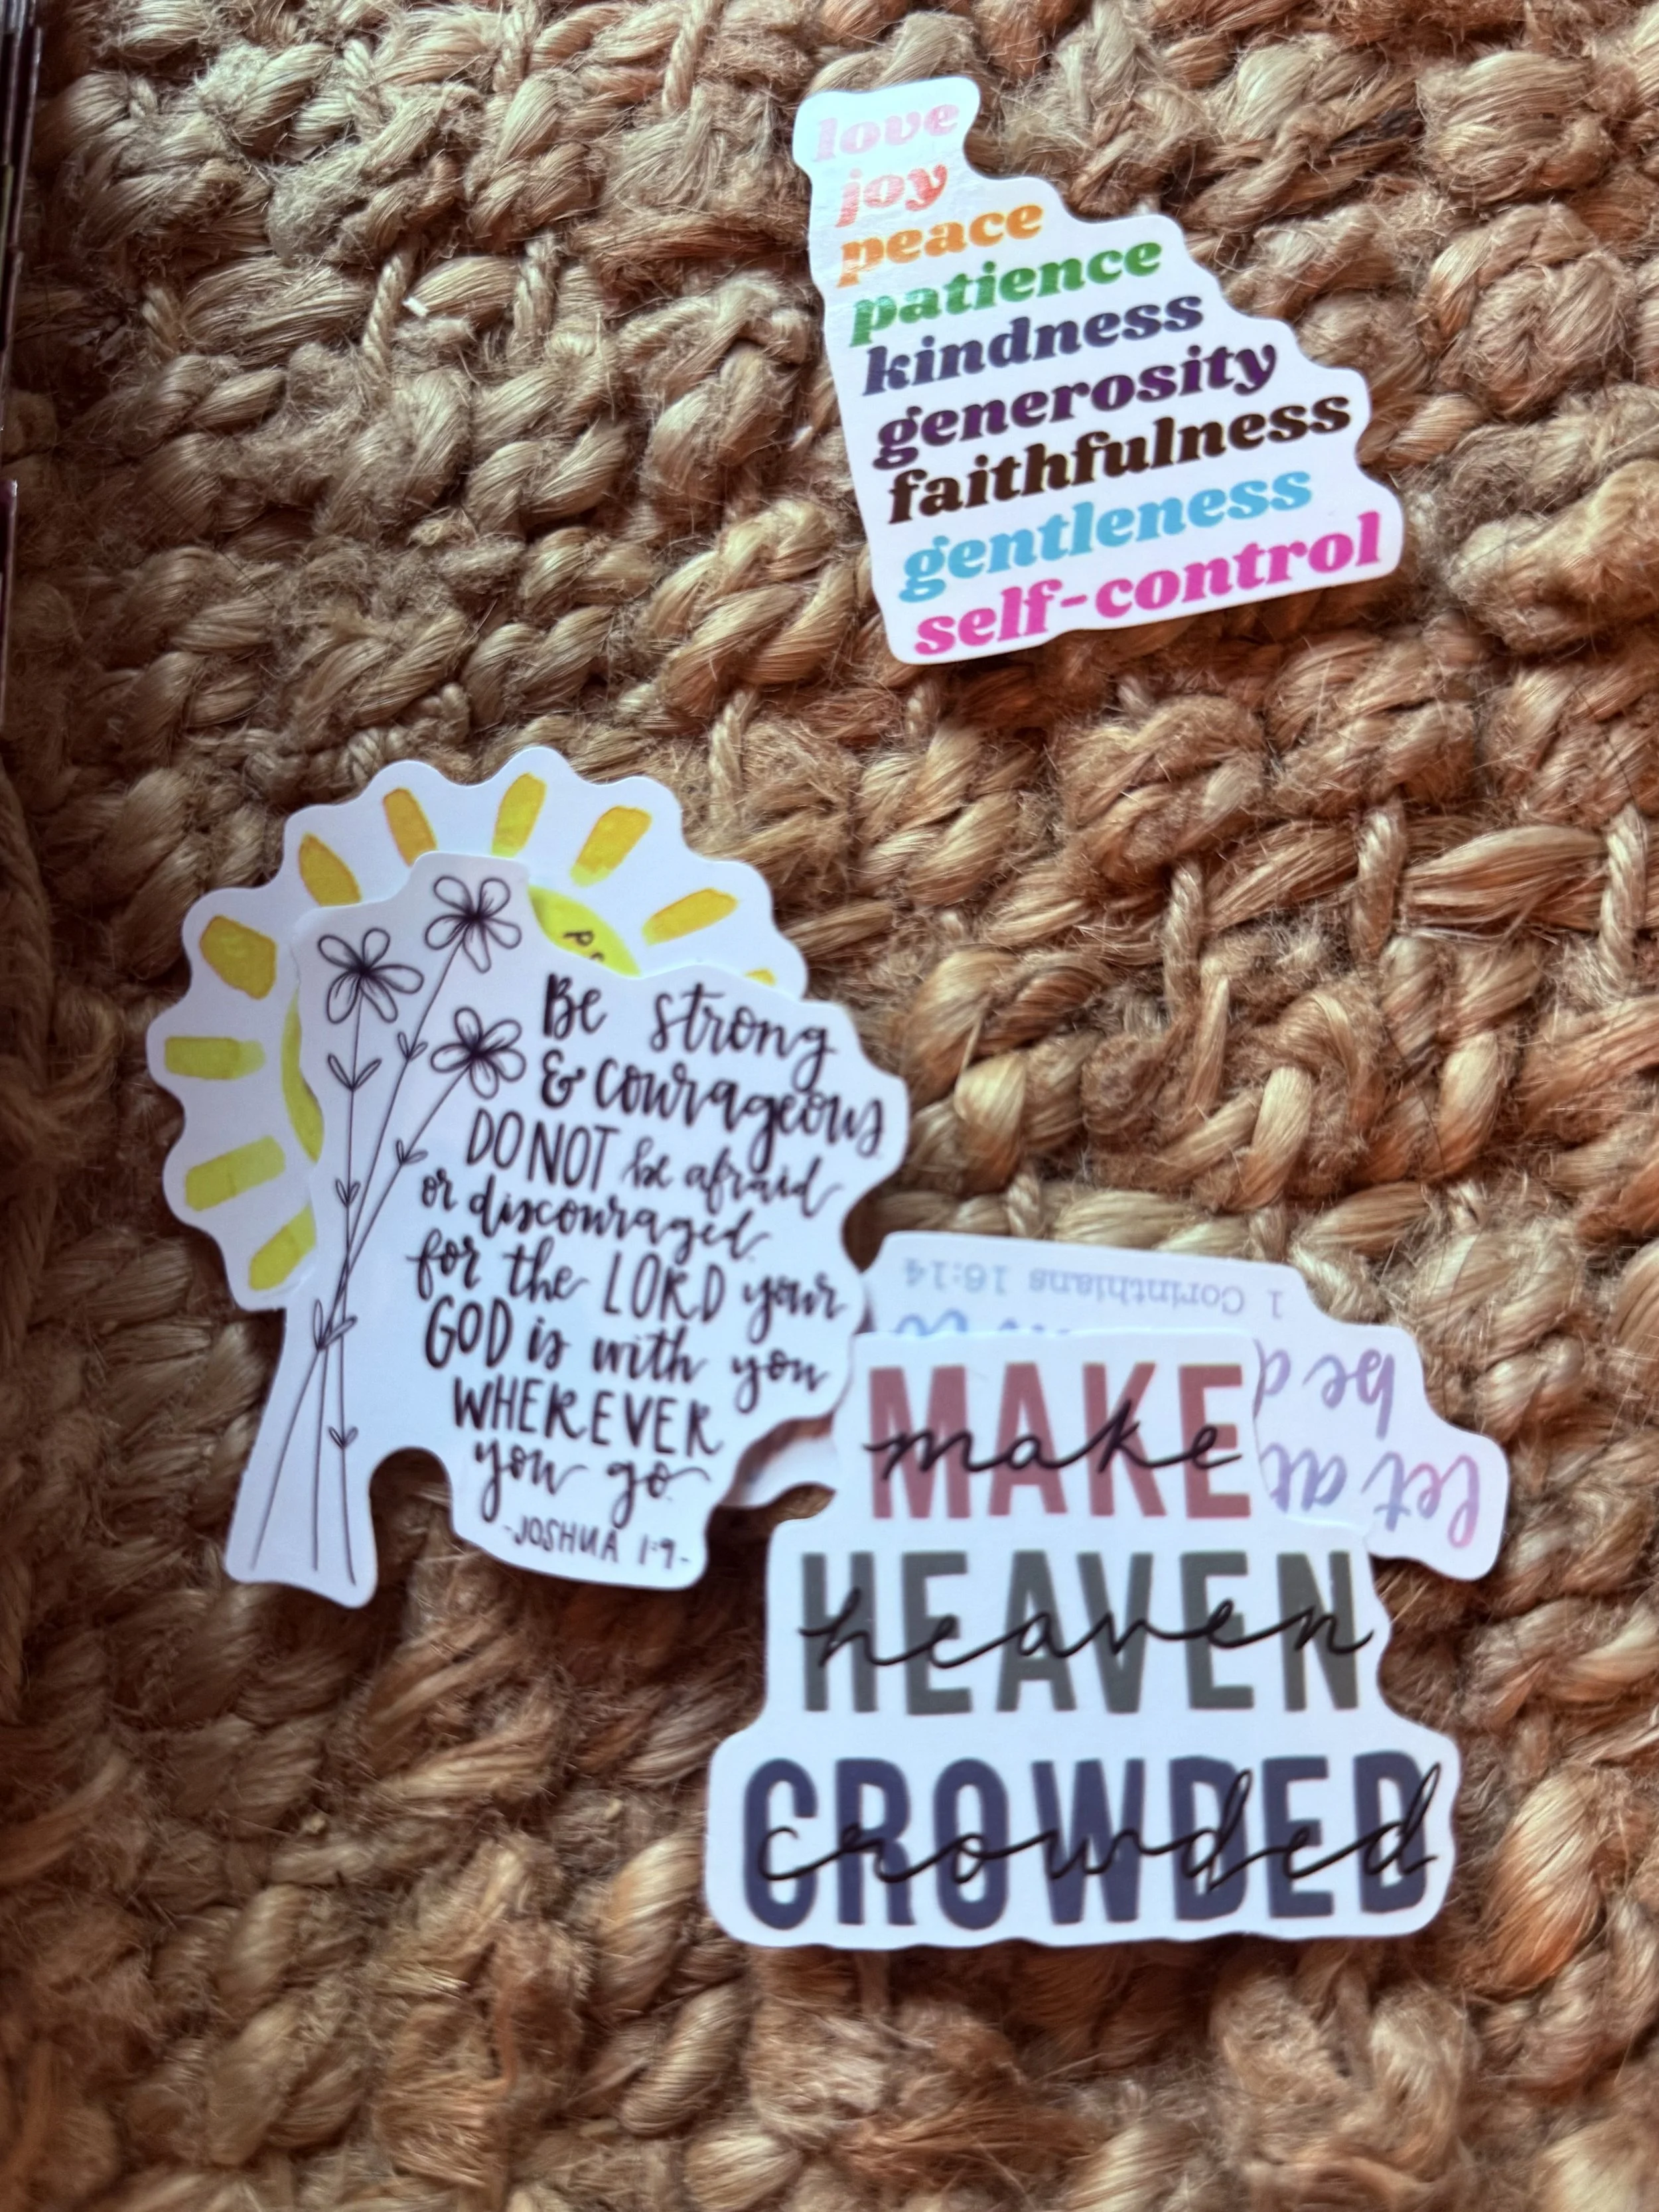 love
joy
peace
patience
kindness
generosity
faithfulness
gentleness
self-control
Be strong
& courageous
DO NOT be afraid
or discouraged
for the LORD your
GOD is with you
WHEREVER
you go.
-JOSHUA 1:9-
1 Corinthians 16:14
be d
let al
MAKE
make
HEAVEN
heaven
CROWDED
crowded